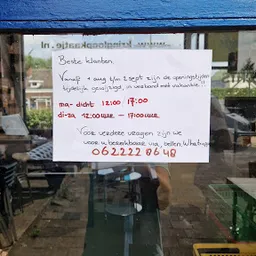 www.kringloopkaatje.nl
Beste klanten
Vanaf 1 aug t/m 2 sept zijn de openingstijden
tijdelijk gewijzigd, in verband met vakantie.
ma- dicht 12:00 17:00
di-za 12:00 uur — 17:00 uur
Voor verdere vragen zijn we
voor u bereikbaar via, bellen, Whatsapp
062222 86 48